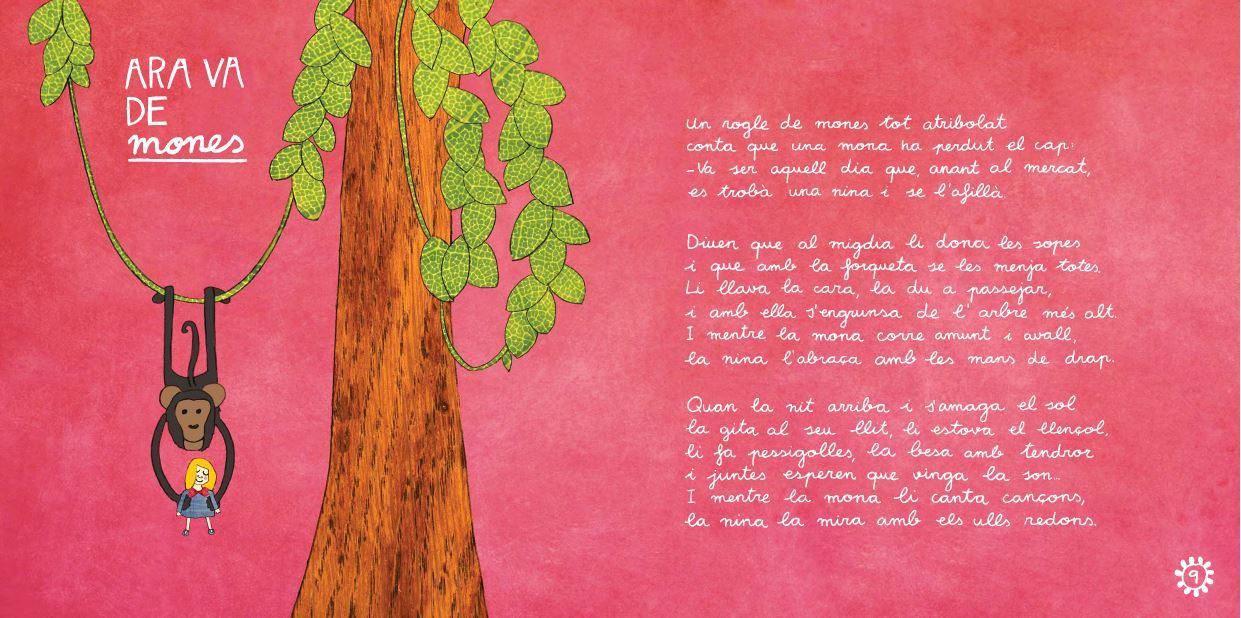 ARA VA
DE
mones
Un rogle de mones tot atribolat
conta que una mona ha perdut el cap:
-Va ser aquell dia que, anant al mercat,
es trobà una nina i se l'afillà.
Diuen que al migdia li dona les sopes
i que amb la forqueta se les menja totes.
Li llava la cara, la du a passejar,
i amb ella s'engrunsa de l'arbre més alt.
I mentre la mona corre amunt i avall,
la nina l'abraça amb les mans de drap.
Quan la nit arriba i s'amaga el sol
la gita al seu llit, li estova el llençol,
li fa pessigolles, la besa amb tendror
i juntes esperen que vinga la son...
I mentre la mona li canta cançons,
la nina la mira amb els ulls redons.
9